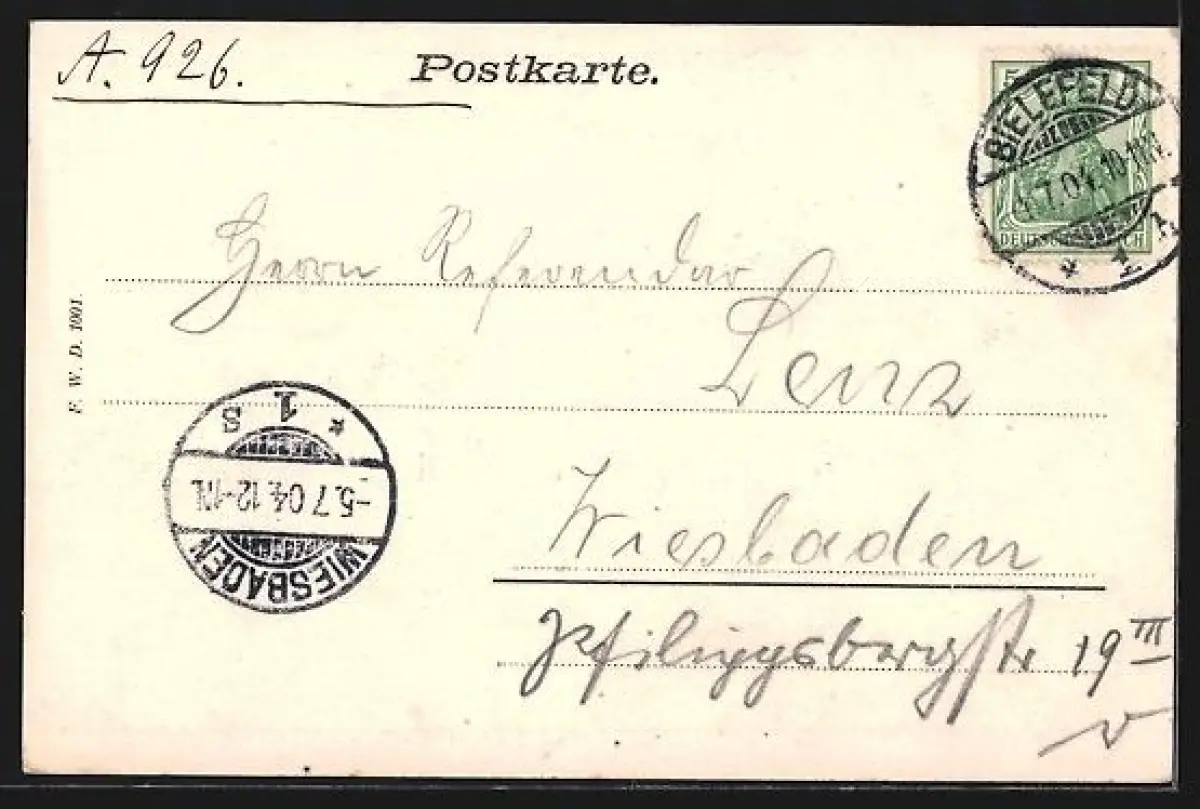 A. 926.
Postkarte.
5
BIELEFELD
7.04.10-11V.
* 1 A
DEUTSCHES REICH
Herrn Referendar
Lenz
F. W. D. 1901.
* 1 S
-5.7 04. 12-1N.
WIESBADEN
Wiesbaden
Philippsbergstr 19 III